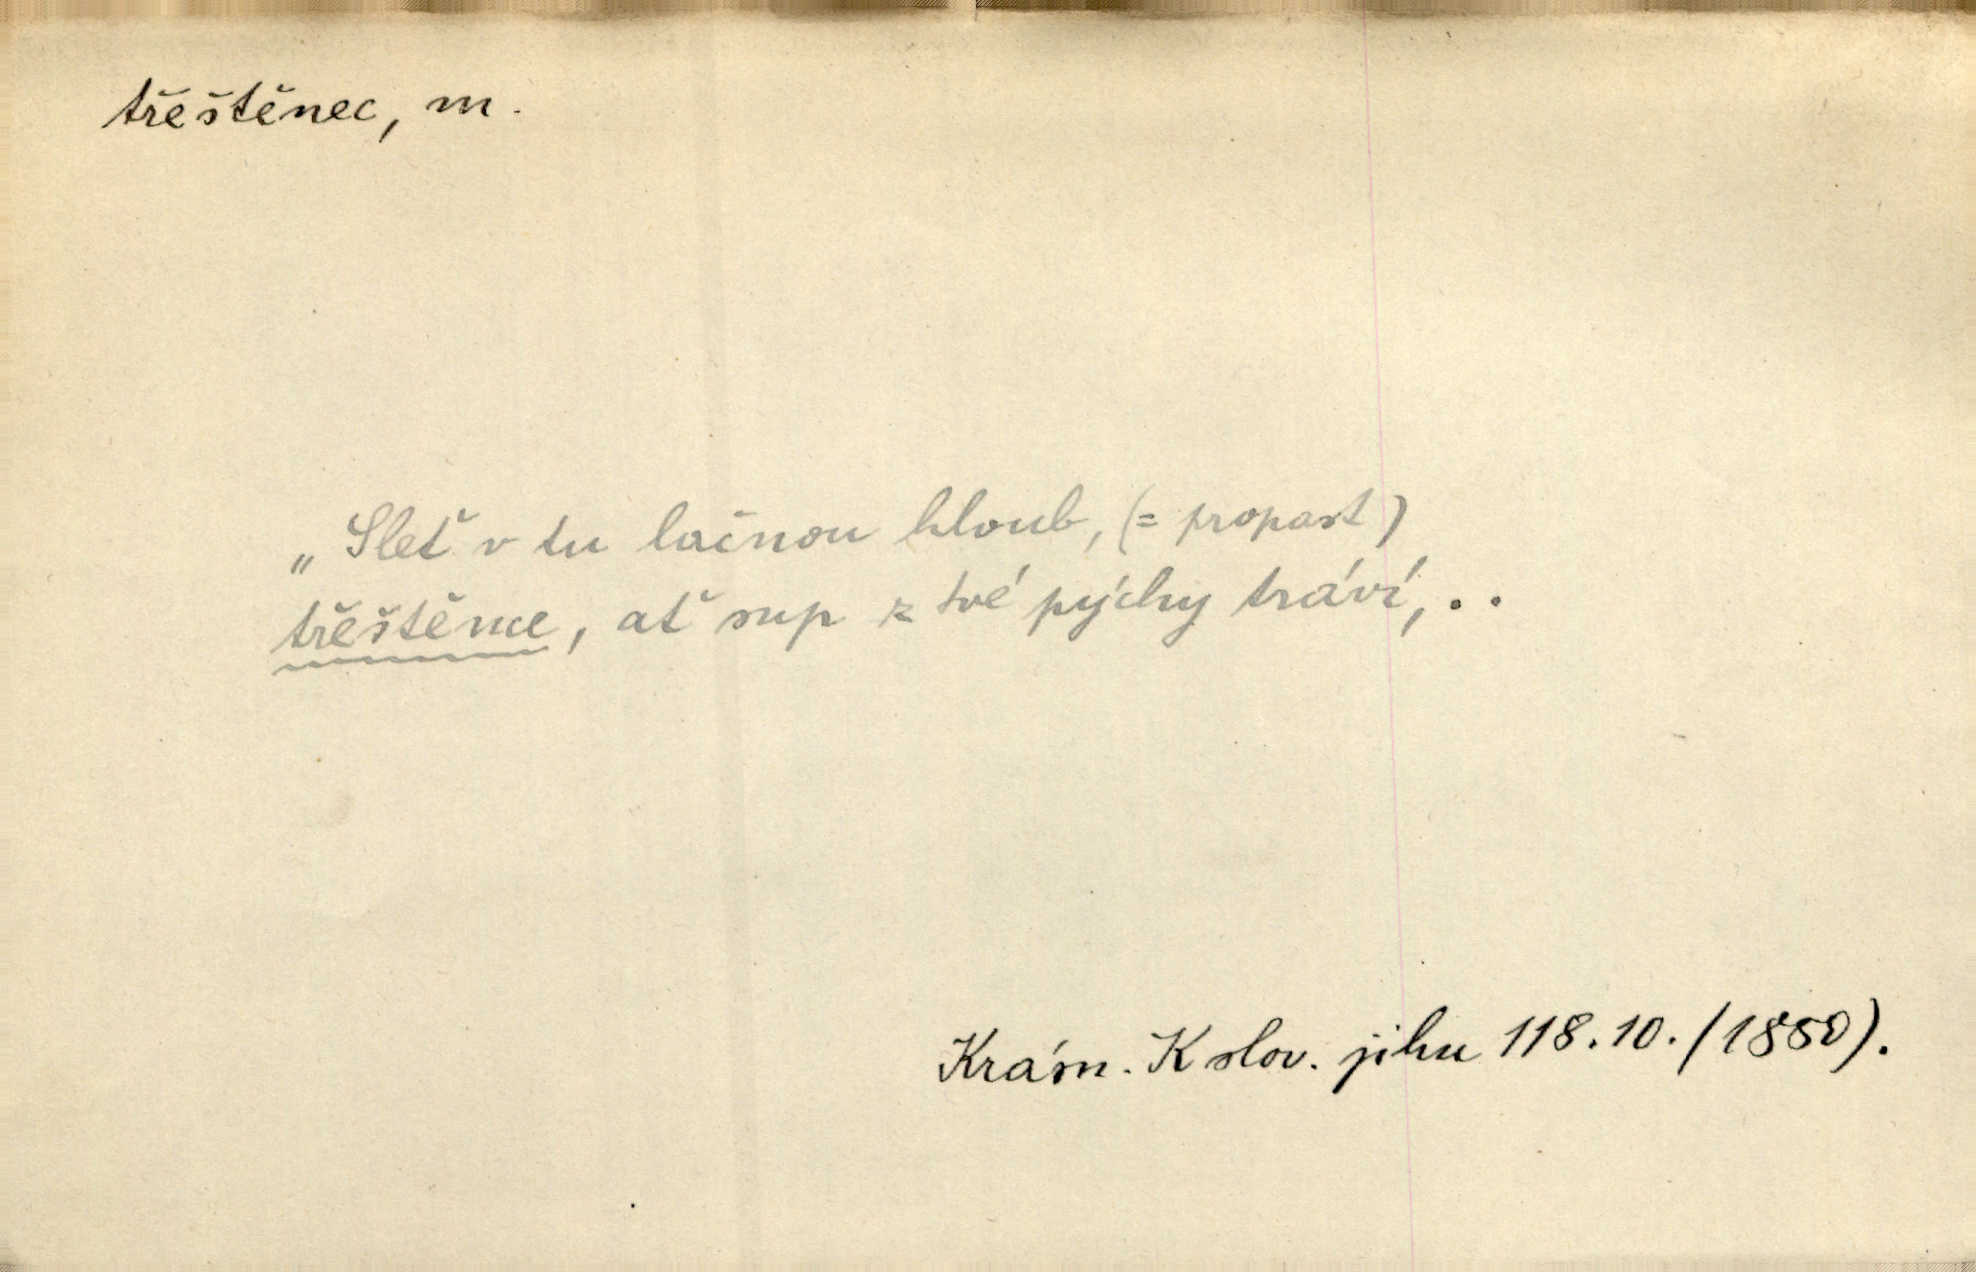 třeštěnec, m.
„Sleť v tu lačnou hloub, (= propast)
třeštěnce, ať sup z tvé pýchy tráví, . .
Krásn. K slov. jihu 118.10. (1880).